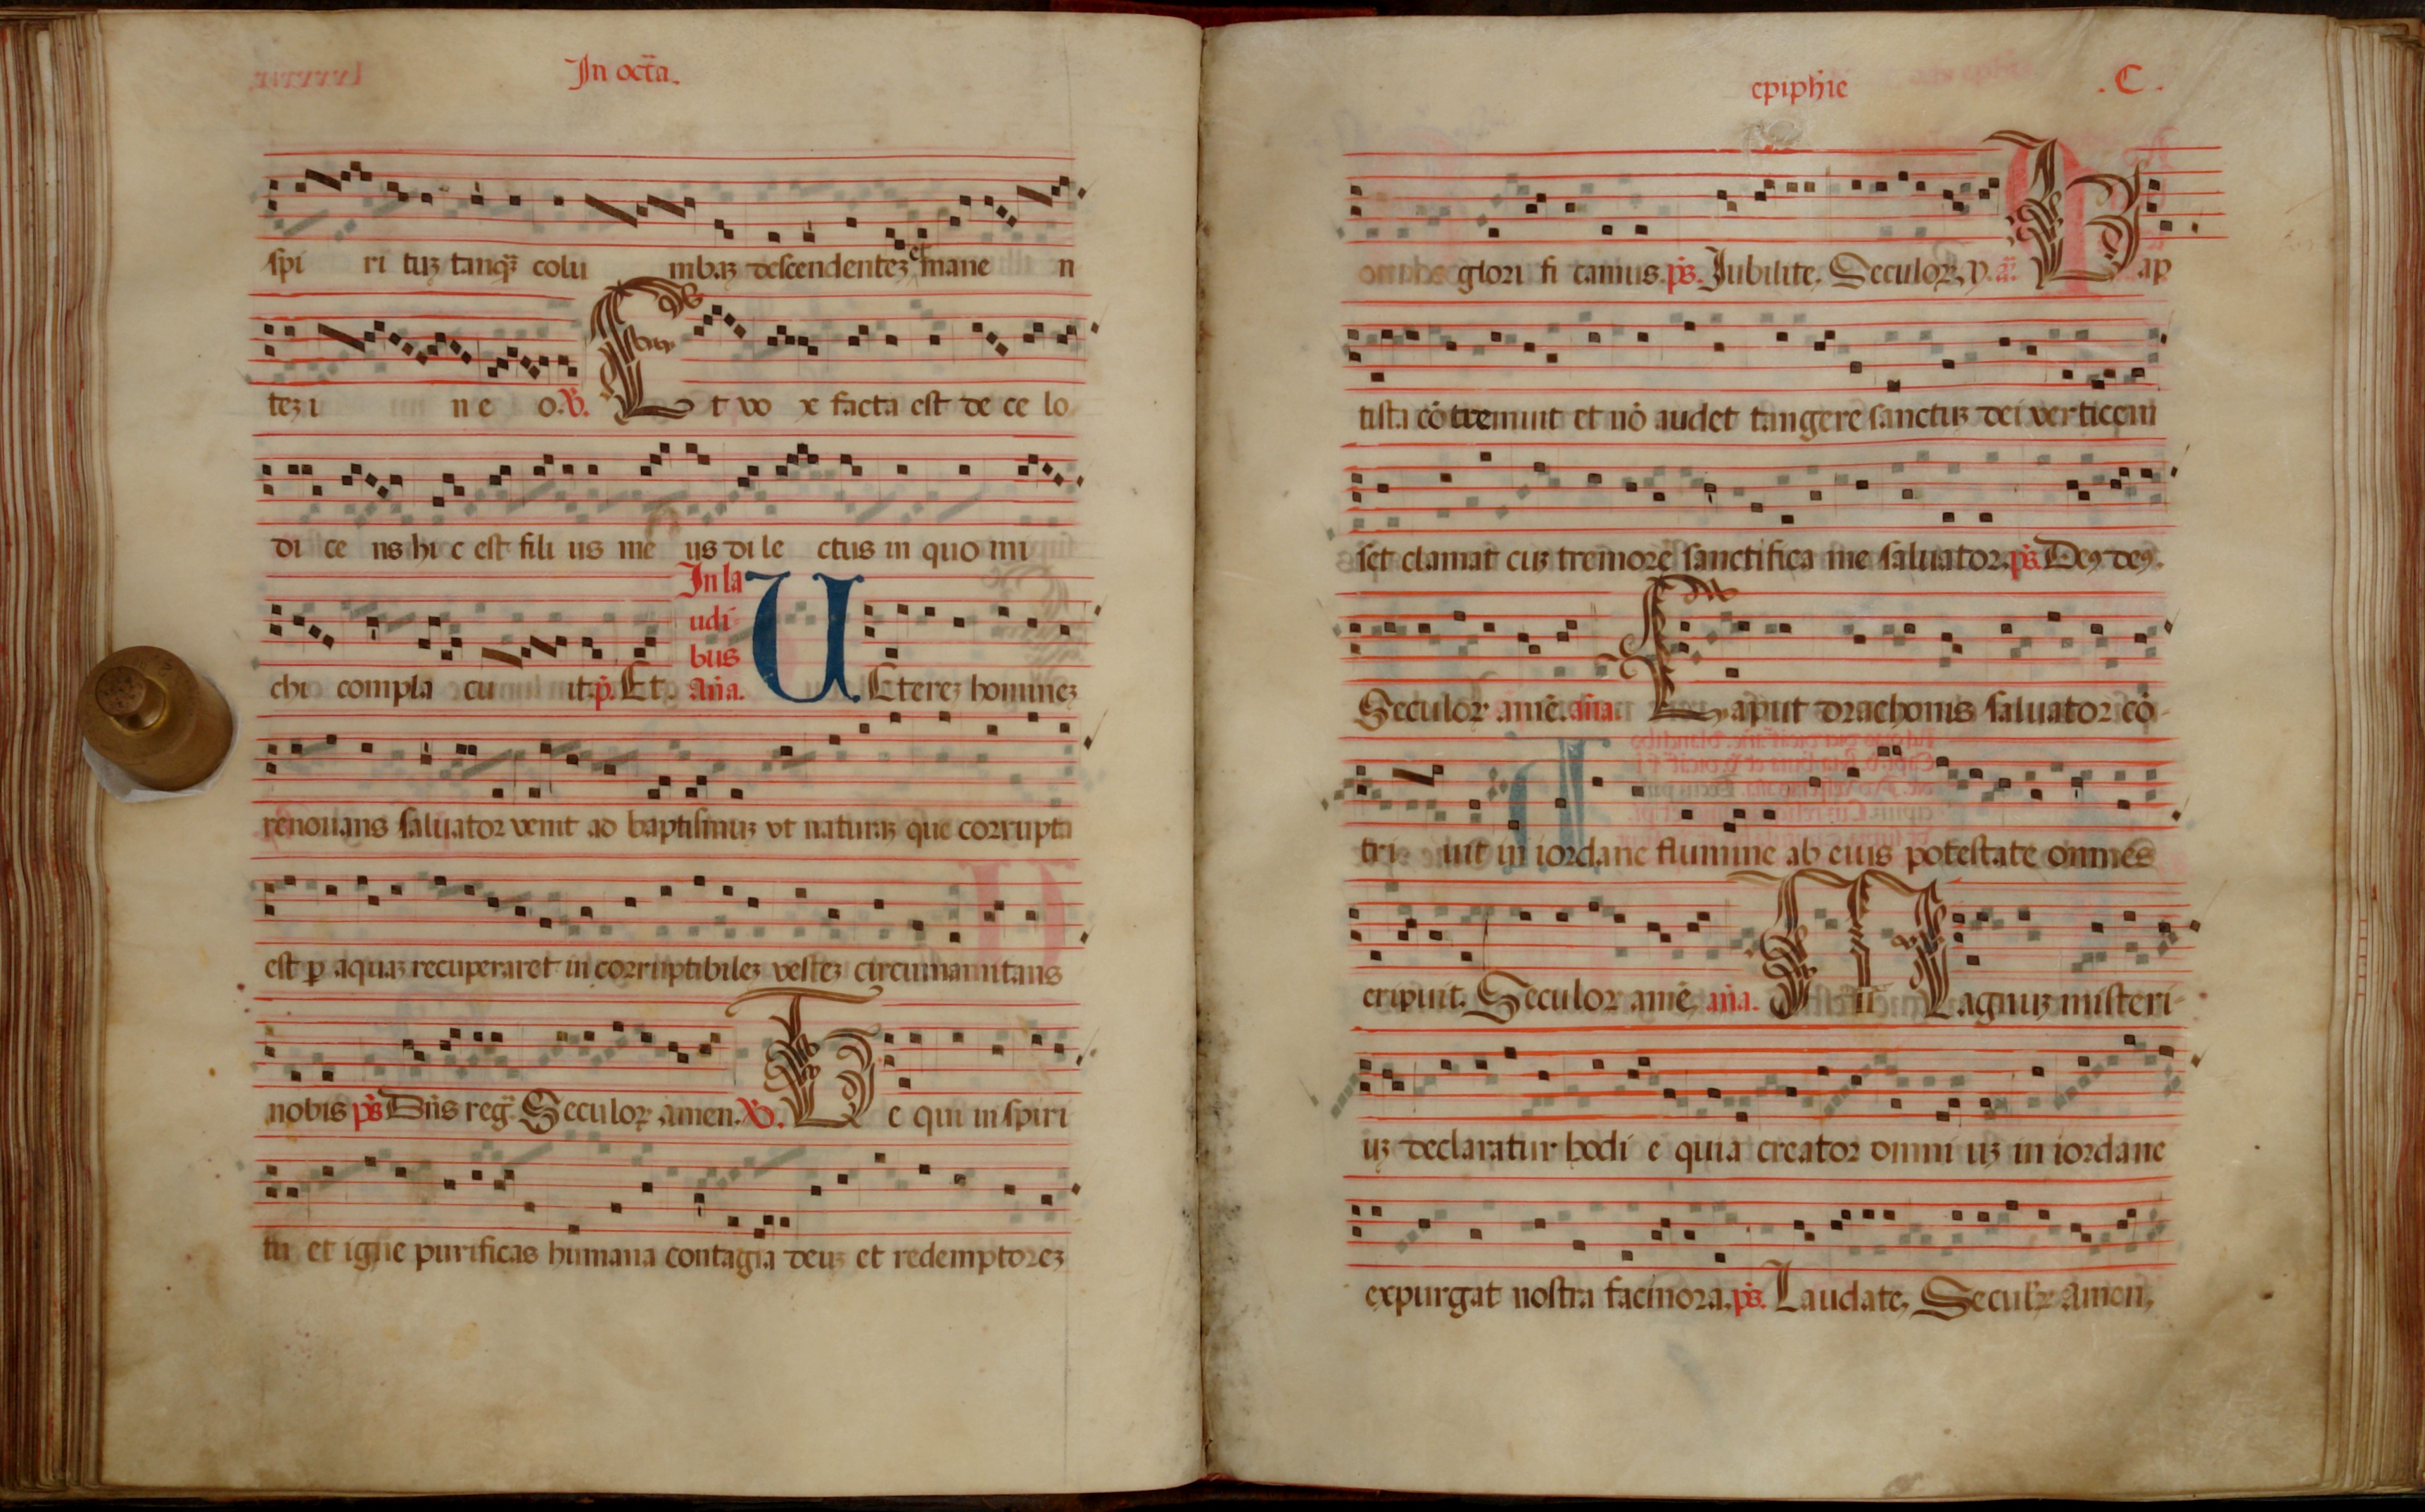 In octa.
spi ri tuʒ tanqʒ colu mbaʒ descendenteʒ et mane n
teʒ i n e o. V. Et vo x facta est de ce lo
di ce ns hi c est fili us me us di le ctus in quo mi
chi compla cu it. p. Et In laudibus Aña. UEtereʒ homineʒ
renouans saluator venit ad baptismuʒ vt naturaʒ que corrupta
est p aquaʒ recuperaret in corruptibileʒ vesteʒ circumamitans
nobis ps Dñs reg. Seculor amen. Te qui in spiri
tu et igne purificas humana contagia deuʒ et redemptoreʒ
epiphie
.C.
glori fi camus. ps. Iubilate. Seculor, Bap
tista cōtremuit et nō audet tangere sanctuʒ dei verticem
set clamat cuʒ tremore sanctifica me saluator. ps. Deꝯ deꝯ.
Seculor amē. aña. Caput drachonis saluator cō
tri uit in iordane flumine ab eius potestate omnes
eripuit. Seculor amē, aña. Magnuʒ misteri
uʒ declaratur hodi e quia creator omni uʒ in iordane
expurgat nostra facinora. ps. Laudate, Seculor amen,